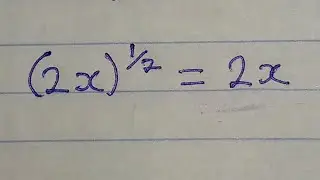 (2x)^{1/2} = 2x